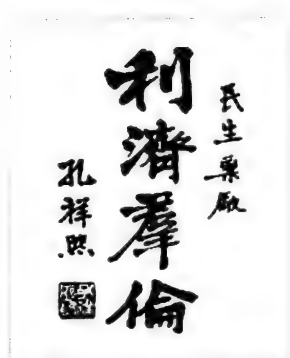 民生藥厰
利濟羣倫
孔祥熙